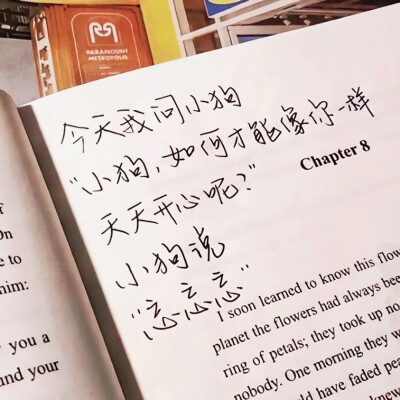 PARAMOUNT
METROPOLIS
今天我问小狗
“小狗，如何才能像你一样
天天开心呢？”
小狗说
“忘忘忘”
On
e to
him:
you a
nd your
Chapter 8
I soon learned to know this flow
planet the flowers had always bee
ring of petals; they took up no
nobody. One morning they w
ould have faded peac
knew